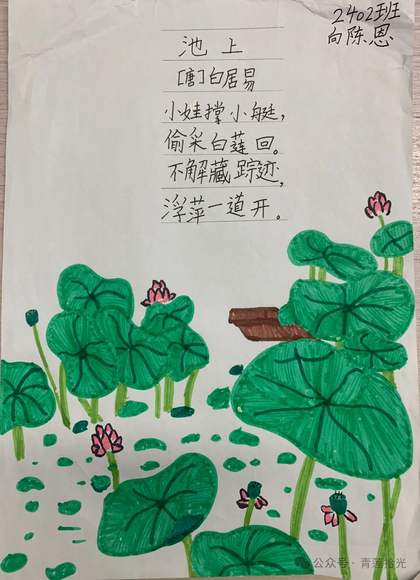 2402班
向陈恩
池上
[唐]白居易
小娃撑小艇，
偷采白莲回。
不解藏踪迹，
浮萍一道开。
公众号·青莲拾光